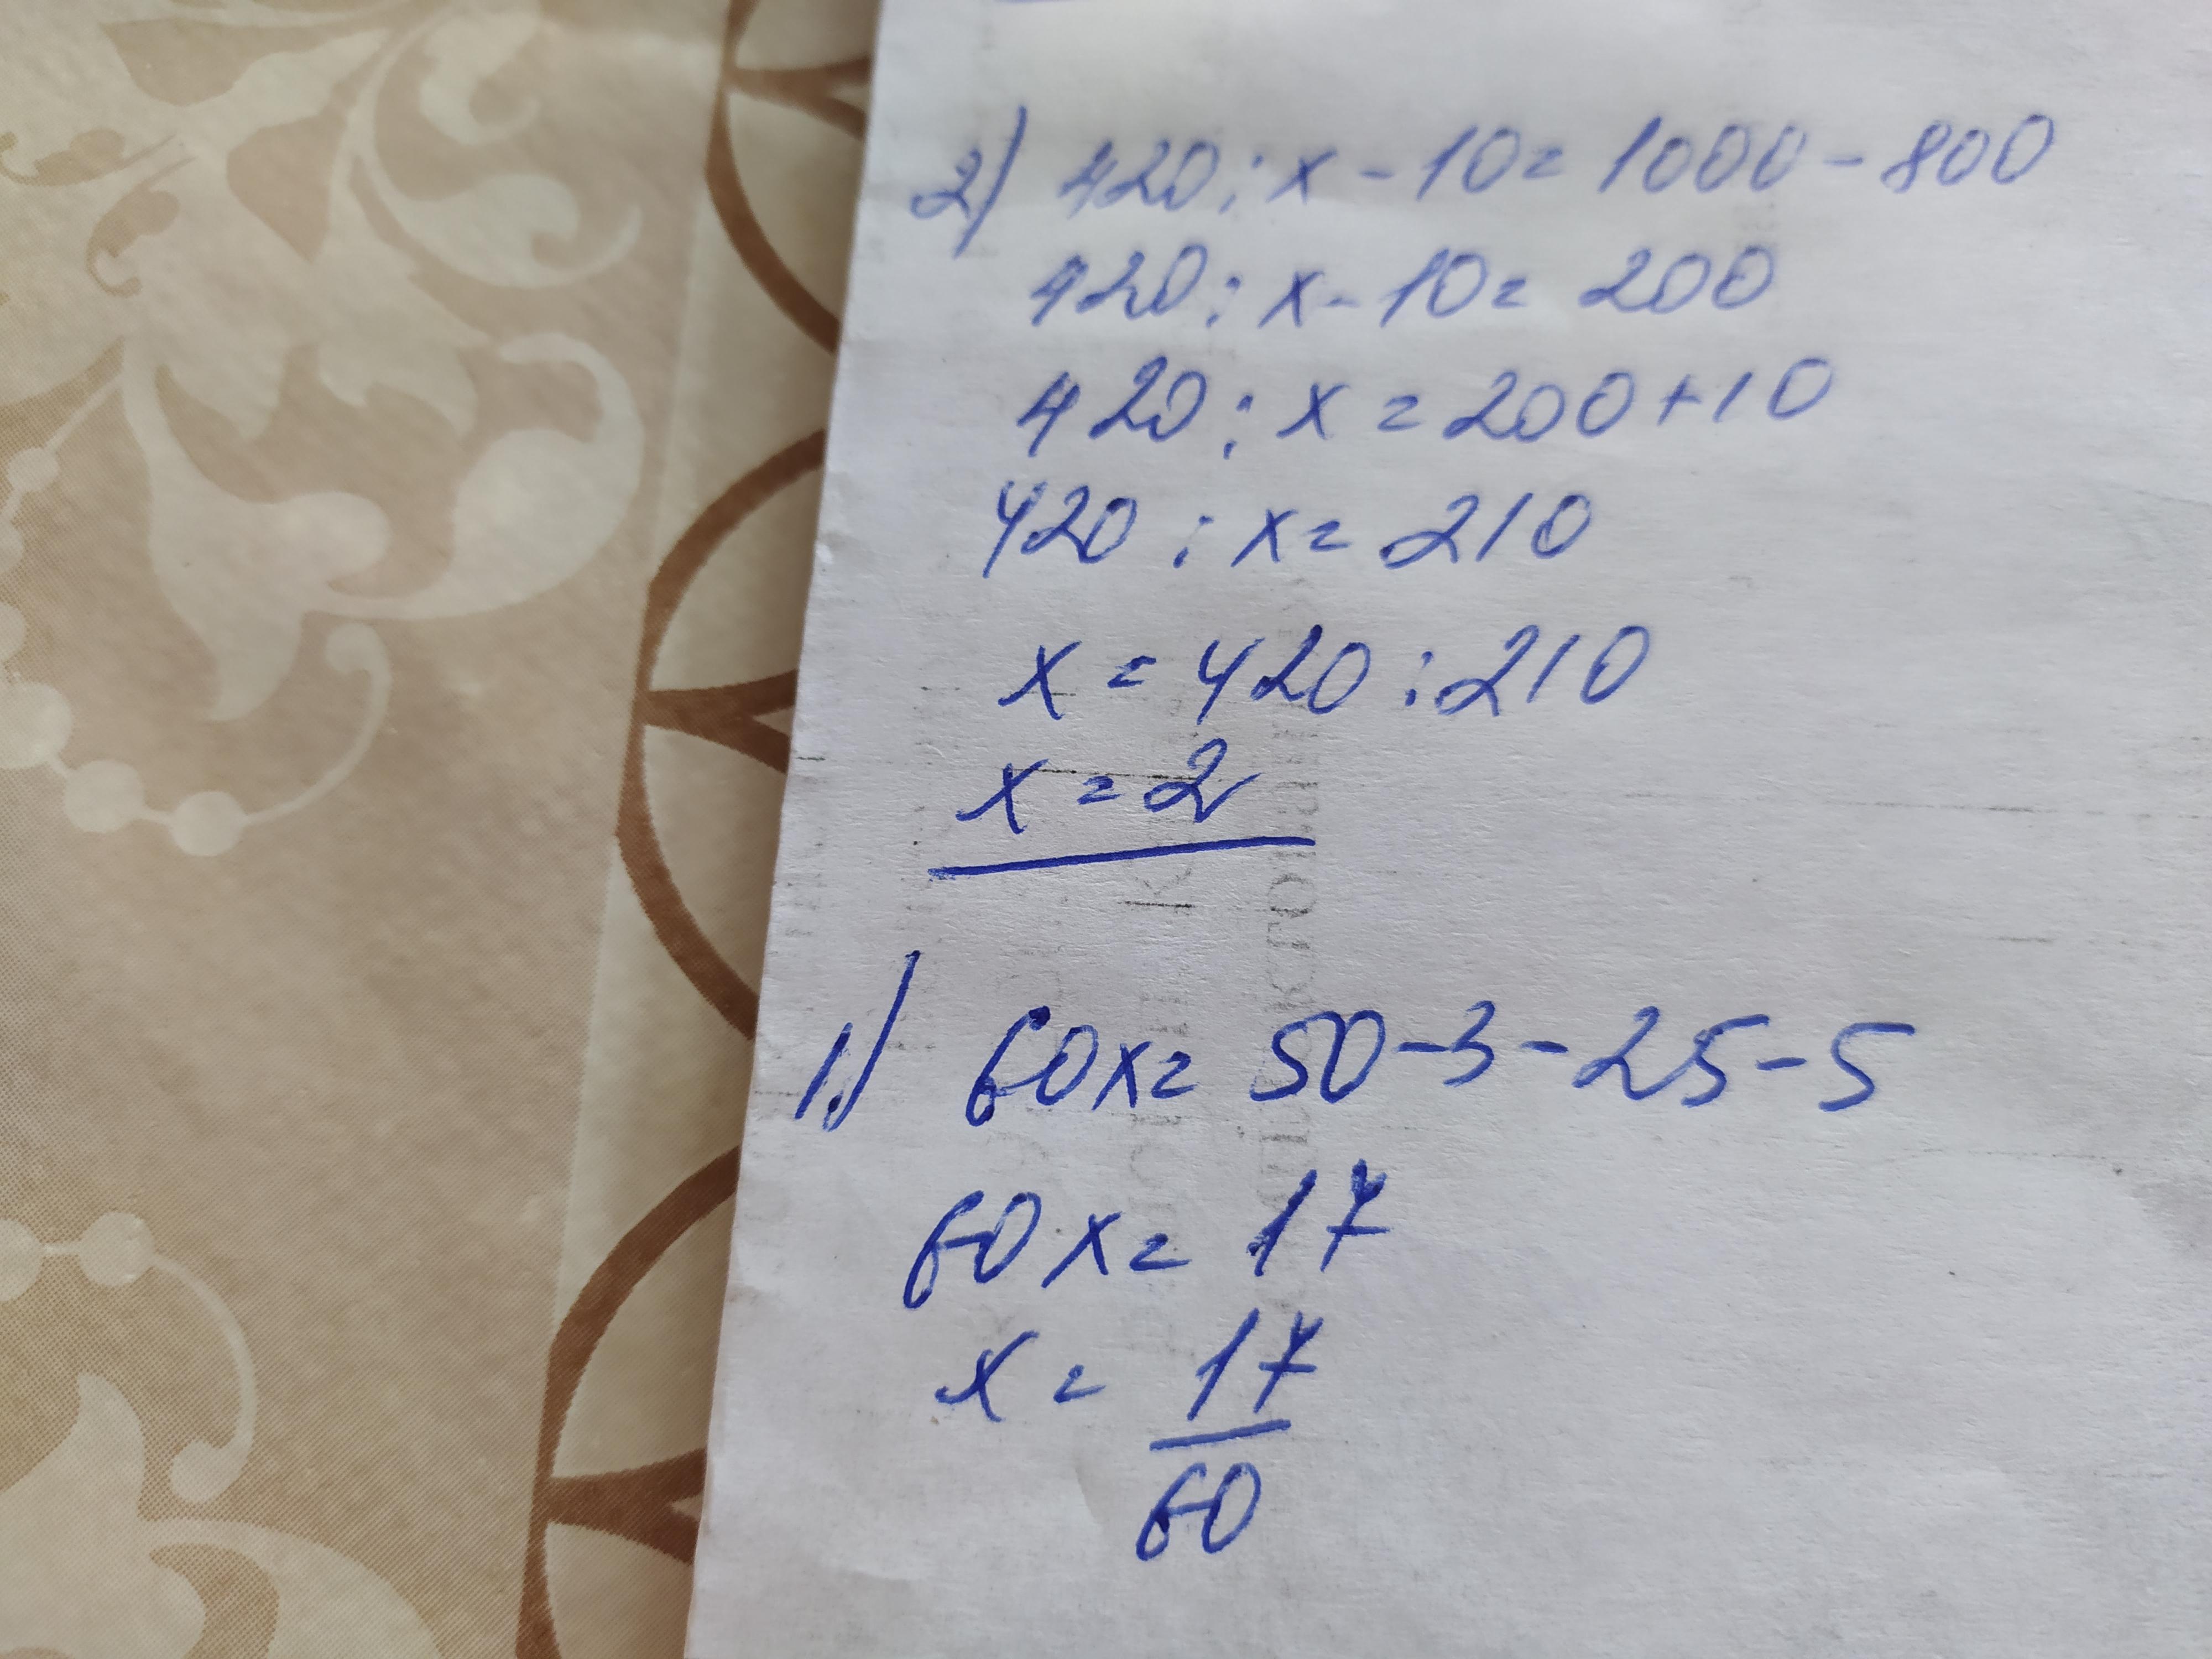 2) 420 : x - 10 = 1000 - 800
420 : x - 10 = 200
420 : x = 200 + 10
420 : x = 210
x = 420 : 210
x = 2
1.) 60x = 50 - 3 - 25 - 5
60x = 17
x = 17/60